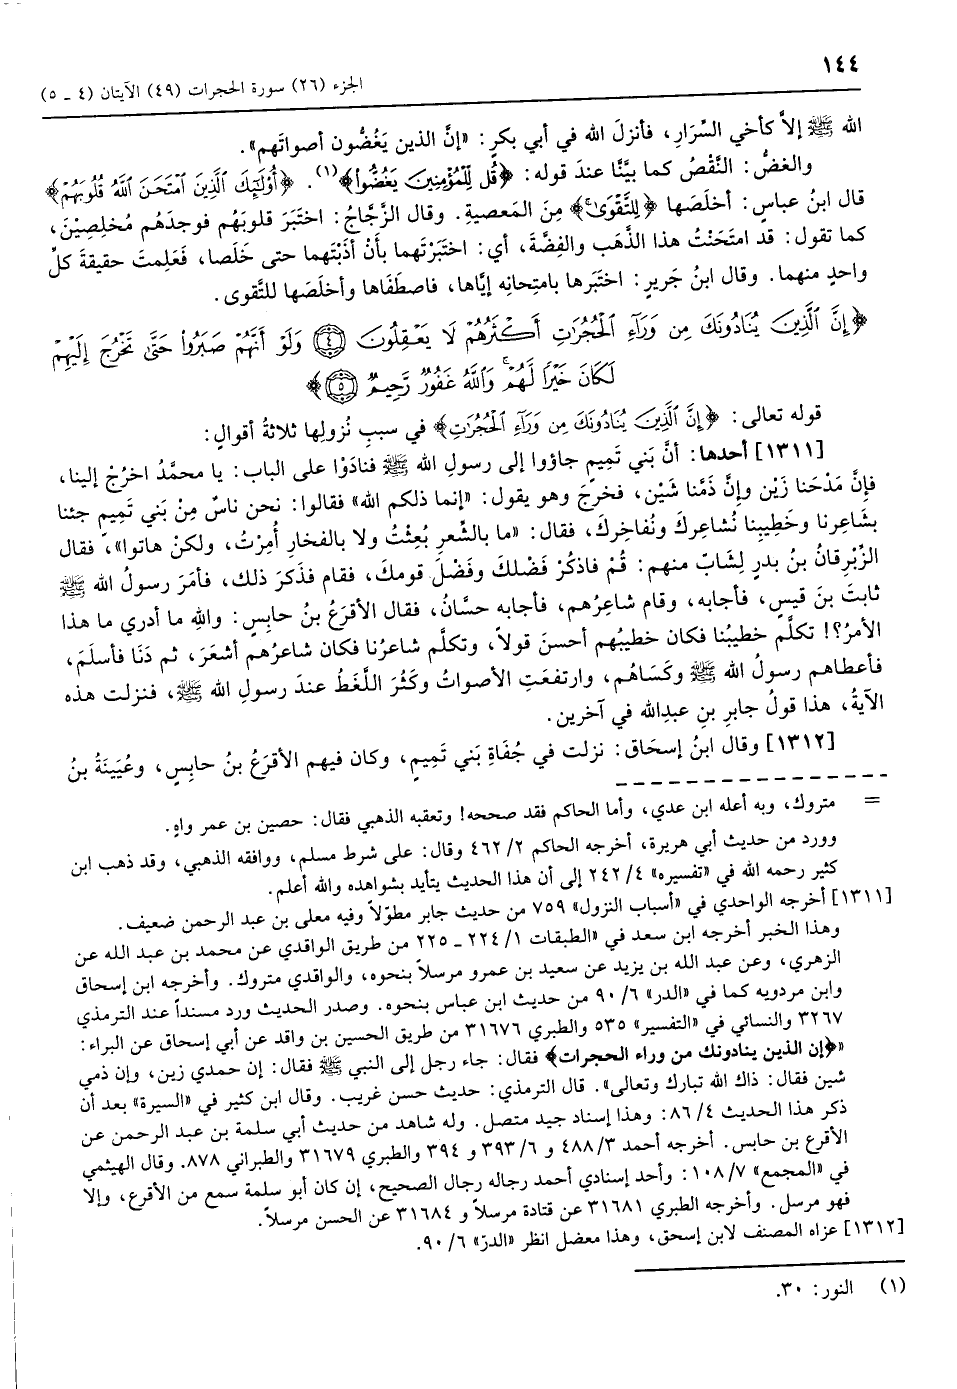 ١٤٤
الجزء (٢٦) سورة الحجرات (٤٩) الآيتان (٤ ـ ٥)
الله ﷺ إلاَّ كأخي السِّرَارِ، فأنزلَ الله في أبي بكرٍ: «إنَّ الذين يَغُضُّون أصواتَهم».
والغضُّ: النَّقْصُ كما بيَّنَّا عندَ قوله: ﴿قُل لِّلْمُؤْمِنِينَ يَغُضُّوا﴾(١). ﴿أُوْلَٰٓئِكَ ٱلَّذِينَ ٱمْتَحَنَ ٱللَّهُ قُلُوبَهُمْ﴾
قال ابنُ عباسٍ: أخلَصَها ﴿لِلتَّقْوَىٰ﴾ مِنَ المَعصيةِ. وقال الزَّجَّاجُ: اختَبَرَ قلوبَهُم فوجدَهُم مُخلِصِيْنَ،
كما تقول: قد امتَحَنْتُ هذا الذَّهَب والفِضَّةَ، أي: اختَبَرْتَهما بأنْ أذَبْتَهما حتى خَلَصا، فَعَلِمتَ حقيقةَ كلِّ
واحدٍ منهما. وقال ابنُ جَريرٍ: اختَبَرها بامتِحانِه إيَّاها، فاصطَفَاها وأخلَصَها للتَّقوى.
﴿إِنَّ ٱلَّذِينَ يُنَادُونَكَ مِن وَرَآءِ ٱلْحُجُرَٰتِ أَكْثَرُهُمْ لَا يَعْقِلُونَ ۝٤ وَلَوْ أَنَّهُمْ صَبَرُوا۟ حَتَّىٰ تَخْرُجَ إِلَيْهِمْ
لَكَانَ خَيْرًا لَّهُمْ ۚ وَٱللَّهُ غَفُورٌ رَّحِيمٌ ۝٥﴾
قوله تعالى: ﴿إِنَّ ٱلَّذِينَ يُنَادُونَكَ مِن وَرَآءِ ٱلْحُجُرَٰتِ﴾ في سببِ نُزولِها ثلاثةُ أقوالٍ:
[١٣١١] أحدها: أنَّ بَني تَميمٍ جاؤوا إلى رسولِ الله ﷺ فنادَوْا على الباب: يا محمَّدُ اخرُجْ إلينا،
فإنَّ مَدْحَنا زَيْن وإنَّ ذَمَّنا شَيْن، فخرجَ وهو يقول: «إنما ذلكم الله» فقالوا: نحن ناسٌ مِنْ بَني تَميمٍ جئنا
بشاعِرنا وخَطِيبِنا نُشاعِركَ ونُفاخِركَ، فقال: «ما بالشِّعرِ بُعِثْتُ ولا بالفخارِ أُمِرْتُ، ولكنْ هاتوا»، فقال
الزِّبْرِقانُ بنُ بدرٍ لِشَابٍّ منهم: قُمْ فاذكُرْ فَضْلكَ وفَضْلَ قومكَ، فقام فذَكرَ ذلك، فأمَرَ رسولُ الله ﷺ
ثابتَ بنَ قيسٍ، فأجابه، وقام شاعِرُهم، فأجابه حسَّانُ، فقال الأقرَعُ بنُ حابِسٍ: واللهِ ما أدري ما هذا
الأمرُ؟! تكلَّم خطيبُنا فكان خطيبُهم أحسنَ قولاً، وتكلَّم شاعرُنا فكان شاعرُهم أشعَرَ، ثم دَنَا فأسلَمَ،
فأعطاهم رسولُ الله ﷺ وكَسَاهُم، وارتفعَتِ الأصواتُ وكَثُرَ اللَّغَطُ عندَ رسولِ الله ﷺ، فنزلت هذه
الآيةُ، هذا قولُ جابرِ بنِ عبدِالله في آخرين.
[١٣١٢] وقال ابنُ إسحَاق: نزلت في جُفَاةِ بَني تَميمٍ، وكان فيهم الأقرَعُ بنُ حابِسٍ، وعُيَينَةُ بنُ
= متروك، وبه أعله ابن عدي، وأما الحاكم فقد صححه! وتعقبه الذهبي فقال: حصين بن عمر واهٍ.
وورد من حديث أبي هريرة، أخرجه الحاكم ٤٦٢/٢ وقال: على شرط مسلم، ووافقه الذهبي، وقد ذهب ابن
كثير رحمه الله في «تفسيره» ٢٤٢/٤ إلى أن هذا الحديث يتأيد بشواهده والله أعلم.
[١٣١١] أخرجه الواحدي في «أسباب النزول» ٧٥٩ من حديث جابر مطوّلاً وفيه معلى بن عبد الرحمن ضعيف.
وهذا الخبر أخرجه ابن سعد في «الطبقات ٢٢٤/١ ـ ٢٢٥ من طريق الواقدي عن محمد بن عبد الله عن
الزهري، وعن عبد الله بن يزيد عن سعيد بن عمرو مرسلاً بنحوه، والواقدي متروك. وأخرجه ابن إسحاق
وابن مردويه كما في «الدر» ٩٠/٦ من حديث ابن عباس بنحوه. وصدر الحديث ورد مسنداً عند الترمذي
٣٢٦٧ والنسائي في «التفسير» ٥٣٥ والطبري ٣١٦٧٦ من طريق الحسين بن واقد عن أبي إسحاق عن البراء:
«﴿إن الذين ينادونك من وراء الحجرات﴾ فقال: جاء رجل إلى النبي ﷺ فقال: إن حمدي زين، وإن ذمي
شين فقال: ذاك الله تبارك وتعالى». قال الترمذي: حديث حسن غريب. وقال ابن كثير في «السيرة» بعد أن
ذكر هذا الحديث ٨٦/٤: وهذا إسناد جيد متصل. وله شاهد من حديث أبي سلمة بن عبد الرحمن عن
الأقرع بن حابس. أخرجه أحمد ٤٨٨/٣ و ٣٩٣/٦ و ٣٩٤ والطبري ٣١٦٧٩ والطبراني ٨٧٨. وقال الهيثمي
في «المجمع» ١٠٨/٧: وأحد إسنادي أحمد رجاله رجال الصحيح، إن كان أبو سلمة سمع من الأقرع، وإلا
فهو مرسل. وأخرجه الطبري ٣١٦٨١ عن قتادة مرسلاً و ٣١٦٨٤ عن الحسن مرسلاً.
[١٣١٢] عزاه المصنف لابن إسحق، وهذا معضل انظر «الدرّ» ٩٠/٦.
(١) النور: ٣٠.